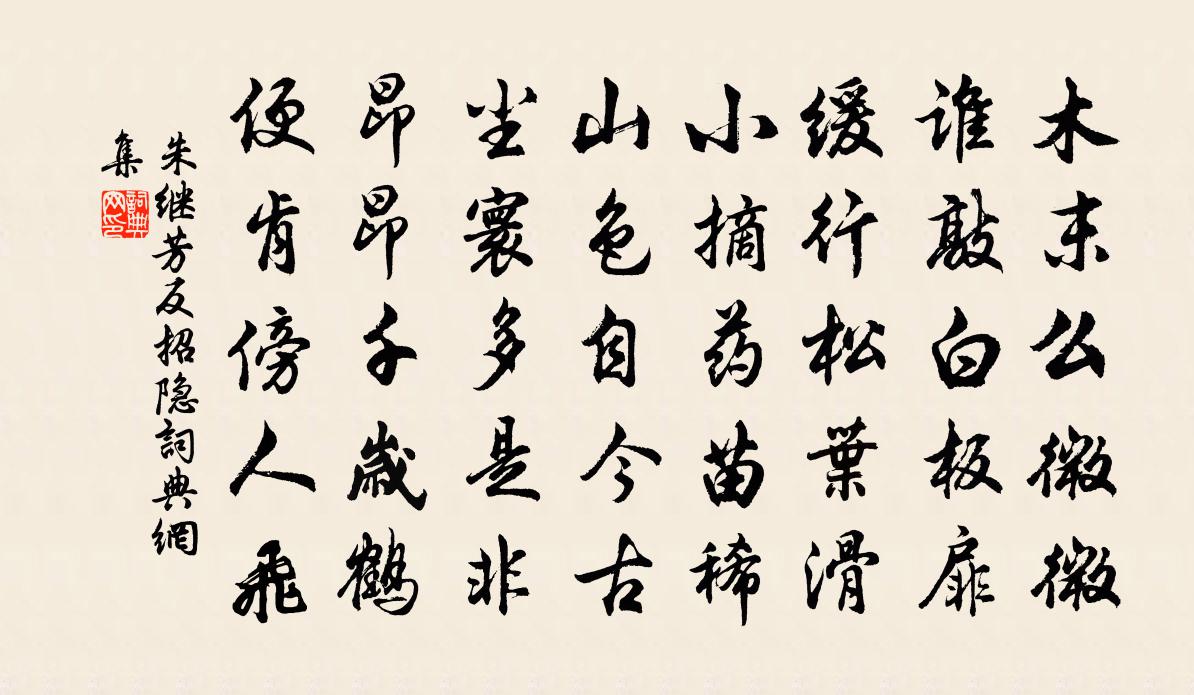 木末么微微
谁敲白板扉
缓行松葉滑
小摘药苗稀
山色自今古
尘寰多是非
昂昂千歲鹤
便肯傍人飛
朱继芳反招隐詞典網
集
詞典
网印